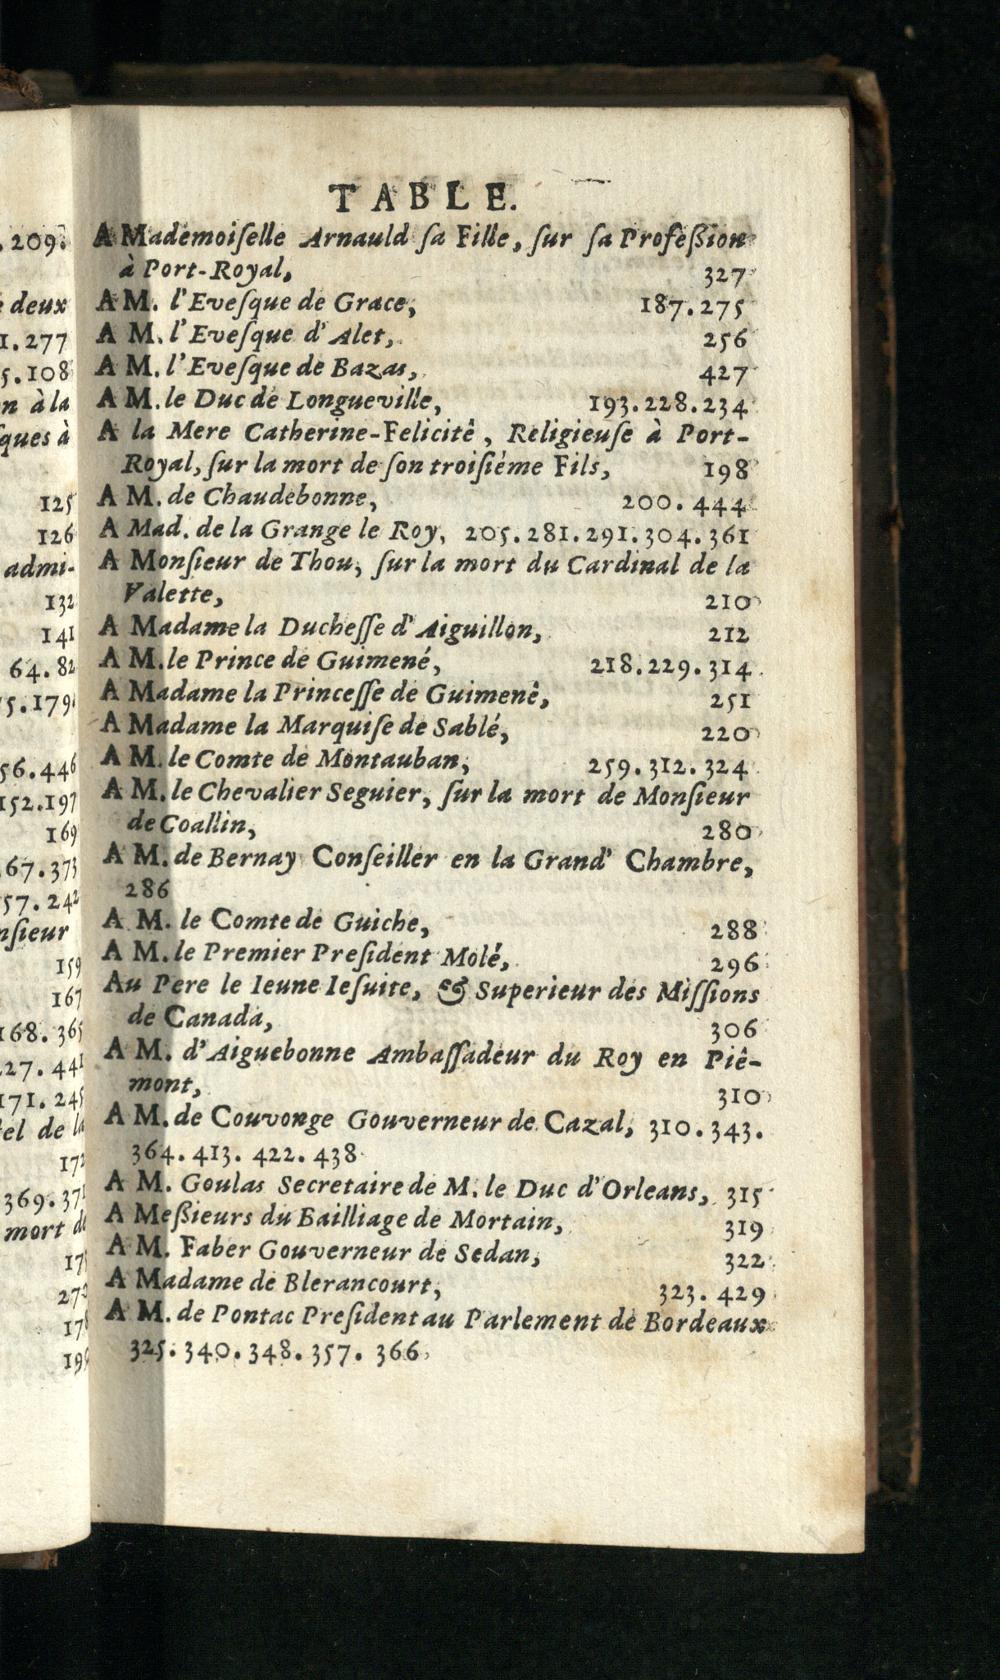 TABLE.
A Mademoiſelle Arnauld ſa Fille, ſur ſa Profeßion
à Port-Royal, 327
A M. l'Eveſque de Grace, 187.275
A M. l'Eveſque d'Alet, 256
A M. l'Eveſque de Bazas, 427
A M. le Duc de Longueville, 193.228.234
A la Mere Catherine-Felicité, Religieuſe à Port-
Royal, ſur la mort de ſon troiſiéme Fils, 198
A M. de Chaudebonne, 200.444
A Mad. de la Grange le Roy, 205.281.291.304.361
A Monſieur de Thou, ſur la mort du Cardinal de la
Valette, 210
A Madame la Ducheſſe d'Aiguillon, 212
A M. le Prince de Guimené, 218.229.314
A Madame la Princeſſe de Guimenê, 251
A Madame la Marquiſe de Sablé, 220
A M. le Comte de Montauban, 259.312.324
A M. le Chevalier Seguier, ſur la mort de Monſieur
de Coallin, 280
A M. de Bernay Conſeiller en la Grand' Chambre,
286
A M. le Comte de Guiche, 288
A M. le Premier Preſident Molé, 296
Au Pere le Ieune Ieſuite, & Superieur des Miſſions
de Canada, 306
A M. d'Aiguebonne Ambaſſadeur du Roy en Piê-
mont, 310
A M. de Couvonge Gouverneur de Cazal, 310.343.
364.413.422.438
A M. Goulas Secretaire de M. le Duc d'Orleans, 315
A Meßieurs du Bailliage de Mortain, 319
A M. Faber Gouverneur de Sedan, 322
A Madame de Blerancourt, 323.429
A M. de Pontac Preſident au Parlement de Bordeaux
325.340.348.357.366
209.
deux
1.277
5.108
n à la
ſques à
125
126
admi-
132
141
64.82
5.179
56.446
152.197
169
67.373
57.242
nſieur
159
167
168.365
27.441
171.245
tel de la
172
369.371
mort de